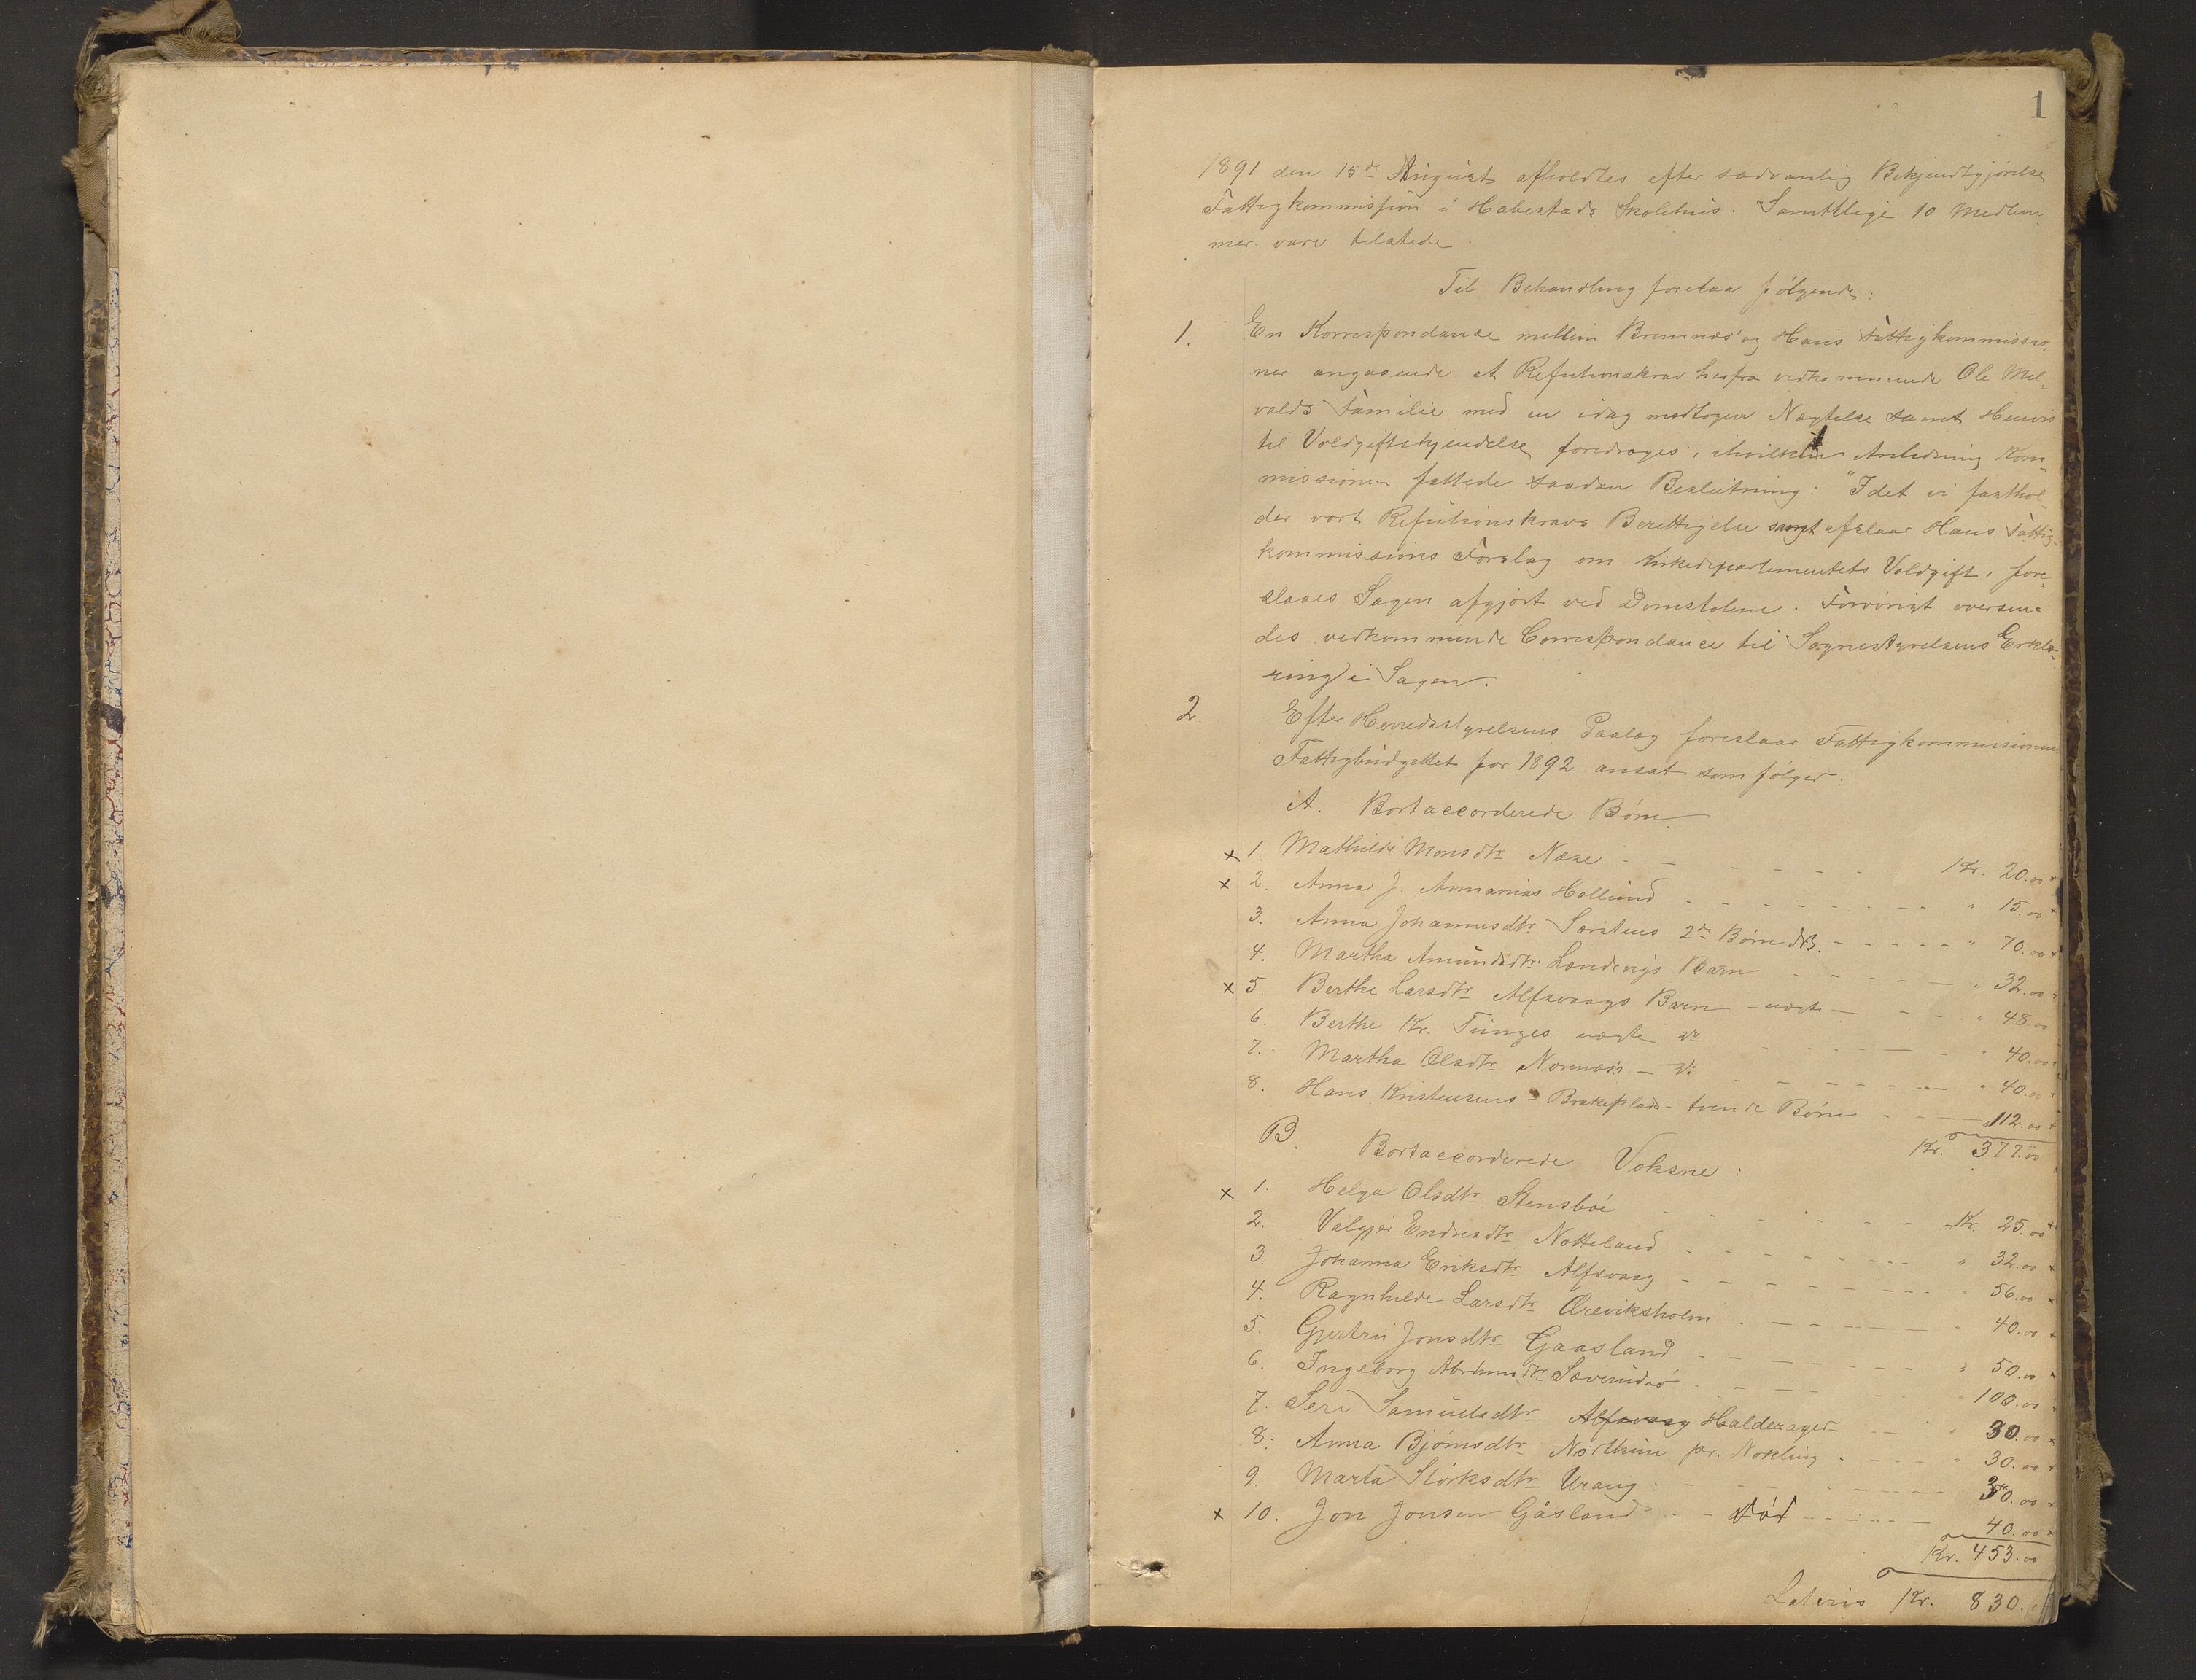 1
1891 den 15de August afholdtes efter sædvanlig Bekjendtgjörelse
Fattigkommission i Habestads Skolehus. Samtlige 10 Medlem-
mer vare tilstede.
Til Behandling foretoges følgende:
1. En Korrespondance mellem Bremnæs' og Haus Fattigkommissio-
ner angaaende et Refutionskrav herfra vedkommende Ole Mel-
valds Familie med en idag modtagen Nægtelse samt Henvis
til Voldgiftskjendelse foredroges, i hvilken Anledning Kom-
missionen fattede saadan Beslutning: "Idet vi fasthol
der vort Refutionskravs Berettigelse samt afslaar Haus Fattig-
kommissions Forslag om Kirkedepartementets Voldgift, fore-
slaaes Sagen afgjort ved Domstolene. Forövrigt oversen-
des vedkommende Correspondance til Sognestyrelsens Erklæ-
ring i Sagen.
2. Efter Herredsstyrelsens Paalæg foreslaar Fattigkommissionen
Fattigbudgettet for 1892 ansat som følger:
A. Bortaccorderede Börn
x 1. Mathilde Monsdtr Næse - - - - - - Kr. 20.00
x 2. Anna J. Annanias Hollund - - - - - - " 15.00
3. Anna Johannesdtr. Sørstens 2de Börn - - - - - " 70.00
4. Martha Amundsdtr. Landevigs Barn - - - - " 32.00
x 5. Berthe Larsdtr Alfsvaags Barn - uægte - - - " 48.00
6. Berthe Kr. Tunges uægte do - - - - " 40.00
7. Martha Olsdtr Norenæs's - do - - - - - " 40.00
8. Hans Kristensens - Brakeplads - tvende Börn - - - 112.00
Kr. 377.00
B. Bortaccorderede Voksne:
x 1. Helga Olsdtr Stensböe - - - - - - Kr. 25.00
2. Valgjer Endresdtr Notteland - - - - - - " 32.00
3. Johanna Eriksdtr Alfsvaag - - - - - - " 56.00
4. Ragnhilde Larsdtr Øreviksholm - - - - - " 40.00
5. Gjertru Jonsdtr Gaasland - - - - - - " 50.00
6. Ingeborg Abrahmsdtr Sæverudsö - - - - " 100.00
7. Seri Samuelsdtr Alfsvaag Halderager - - " 30.00
8. Anna Bjömsdtr Northun pr. Nokling - - - " 30.00
9. Marta Störksdtr Urang: - - - - - 50.00
x 10. Jon Jonsen Gåsland - - död - - - - 40.00
Kr. 453.00
Lateris Kr. 830.